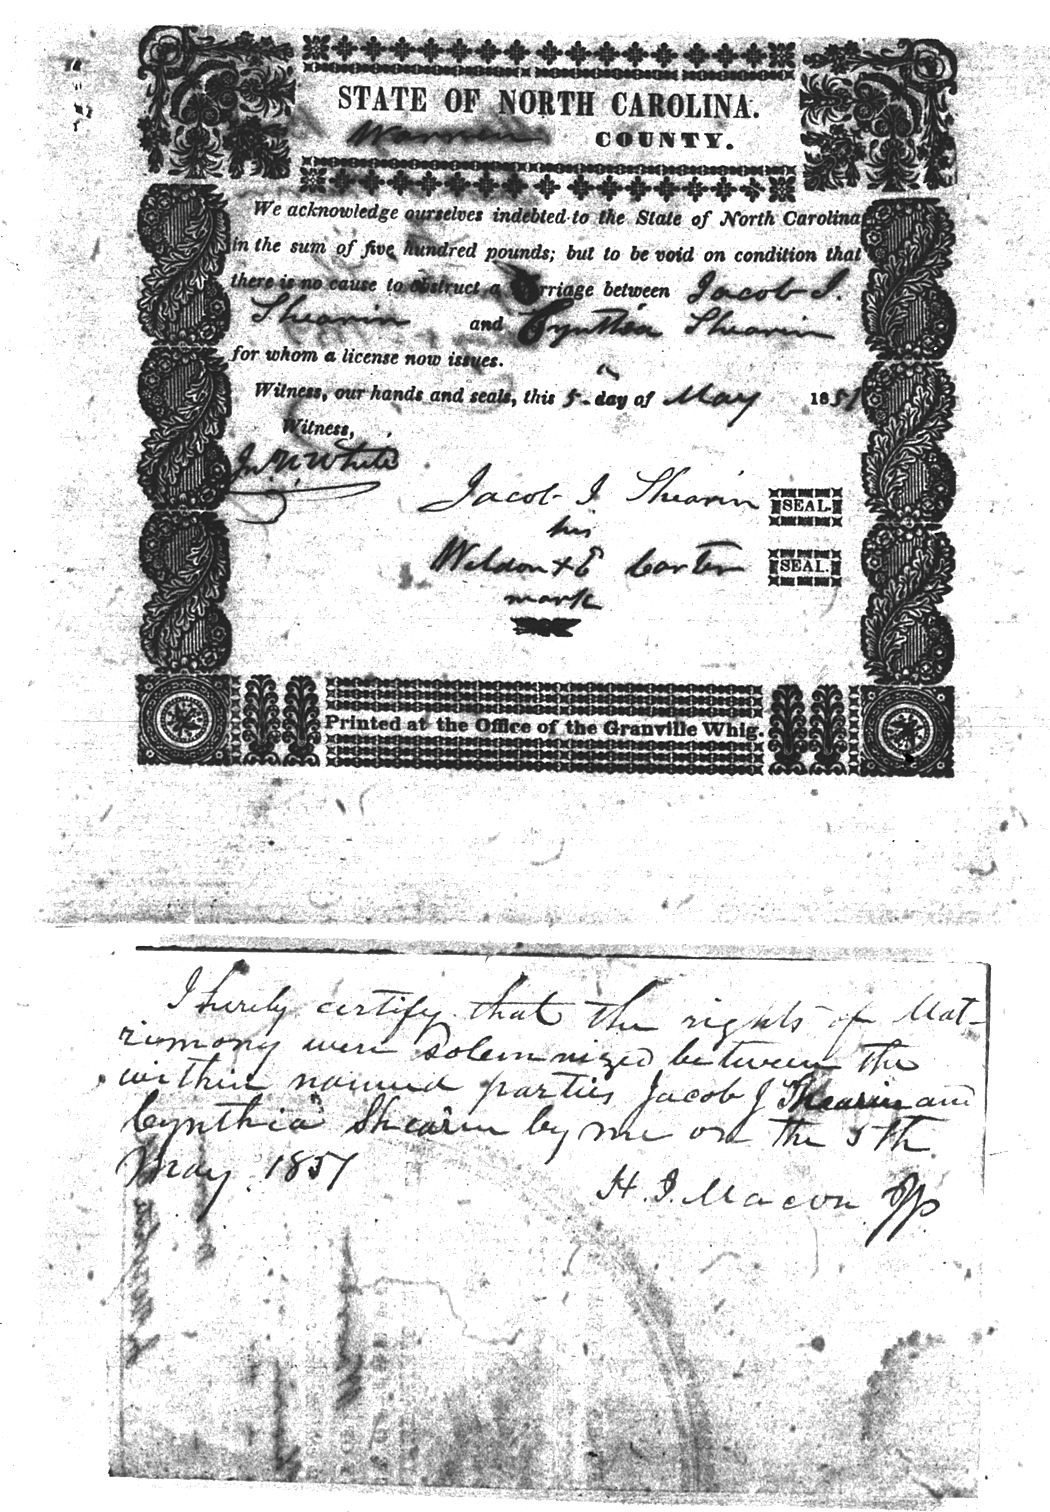 STATE OF NORTH CAROLINA.
Warren COUNTY.
We acknowledge ourselves indebted to the State of North Carolina
in the sum of five hundred pounds; but to be void on condition that
there is no cause to obstruct a marriage between Jacob J.
Shearin and Cynthia Shearin
for whom a license now issues.
Witness, our hands and seals, this 5 day of May 1851
Witness,
Jn. W. White
Jacob J Shearin SEAL.
his
Weldon + E Carter SEAL.
mark
Printed at the Office of the Granville Whig.
I hereby certify that the rights of Mat-
rimony were Solemnized between the
within named parties Jacob J Shearin and
Cynthia Shearin by me on the 5th
May 1851
H. J. Macon JP.